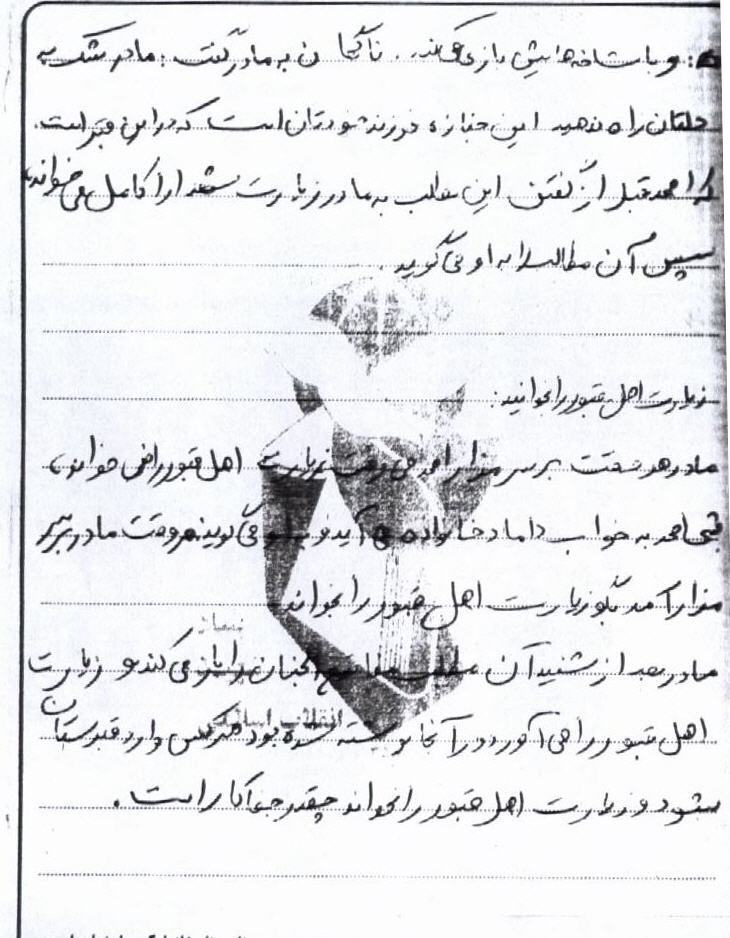 و با شاخه هایش بازی می کند. ناگهان به مادر گفت: مادر شک به
دلتان راه ندهید این جنازه فرزند خودتان است که در این قبر است.
احمد قبل از گفتن این مطلب به مادر زیارت شهدا را کامل می خواند،
سپس آن مطالب را به او می گوید.
زیارت اهل قبور را بخوانید:
مادر هر وقت بر سر مزار احمد می رفت زیارت اهل قبور را نمی خواند،
شبی احمد به خواب داماد خانواده می آید و به او می گوید هر وقت مادر بر سر
مزار آمد بگو زیارت اهل قبور را بخواند.
مادر بعد از شنیدن آن مطلب مفاتیح الجنان را باز می کند و زیارت
اهل قبور را می آورد در آنجا نوشته شده بود هر کس وارد قبرستان
شود و زیارت اهل قبور را بخواند چقدر خدا کار است.
بنیاد
انقلاب اسلامی